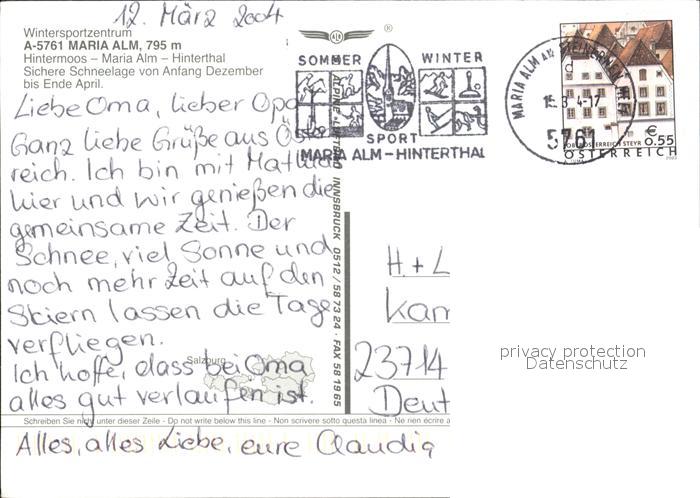 12. März 2004
Wintersportzentrum
A-5761 MARIA ALM, 795 m
Hintermoos – Maria Alm – Hinterthal
Sichere Schneelage von Anfang Dezember
bis Ende April.
Liebe Oma, lieber Opa
Ganz liebe Grüße aus Öster
reich. Ich bin mit
hier und wir genießen die
gemeinsame Zeit. Der
Schnee, viel Sonne und
noch mehr Zeit auf den
Skiern lassen die Tage
verfliegen.
Ich hoffe, dass bei Oma
alles gut verlaufen ist.
Salzburg
Schreiben Sie nicht unter dieser Zeile - Do not write below this line - Non scrivere sotto questa linea - Ne rien écrire a
Alles, alles Liebe, eure Claudia
INNSBRUCK 0512/58 73 24 · FAX 58 19 65
SOMMER WINTER
SPORT
MARIA ALM-HINTERTHAL
MARIA ALM
15.3 4-17
576
€ 0.55
ÖSTERREICH
H. + L
Kam
23714
Deut
privacy protection
Datenschutz